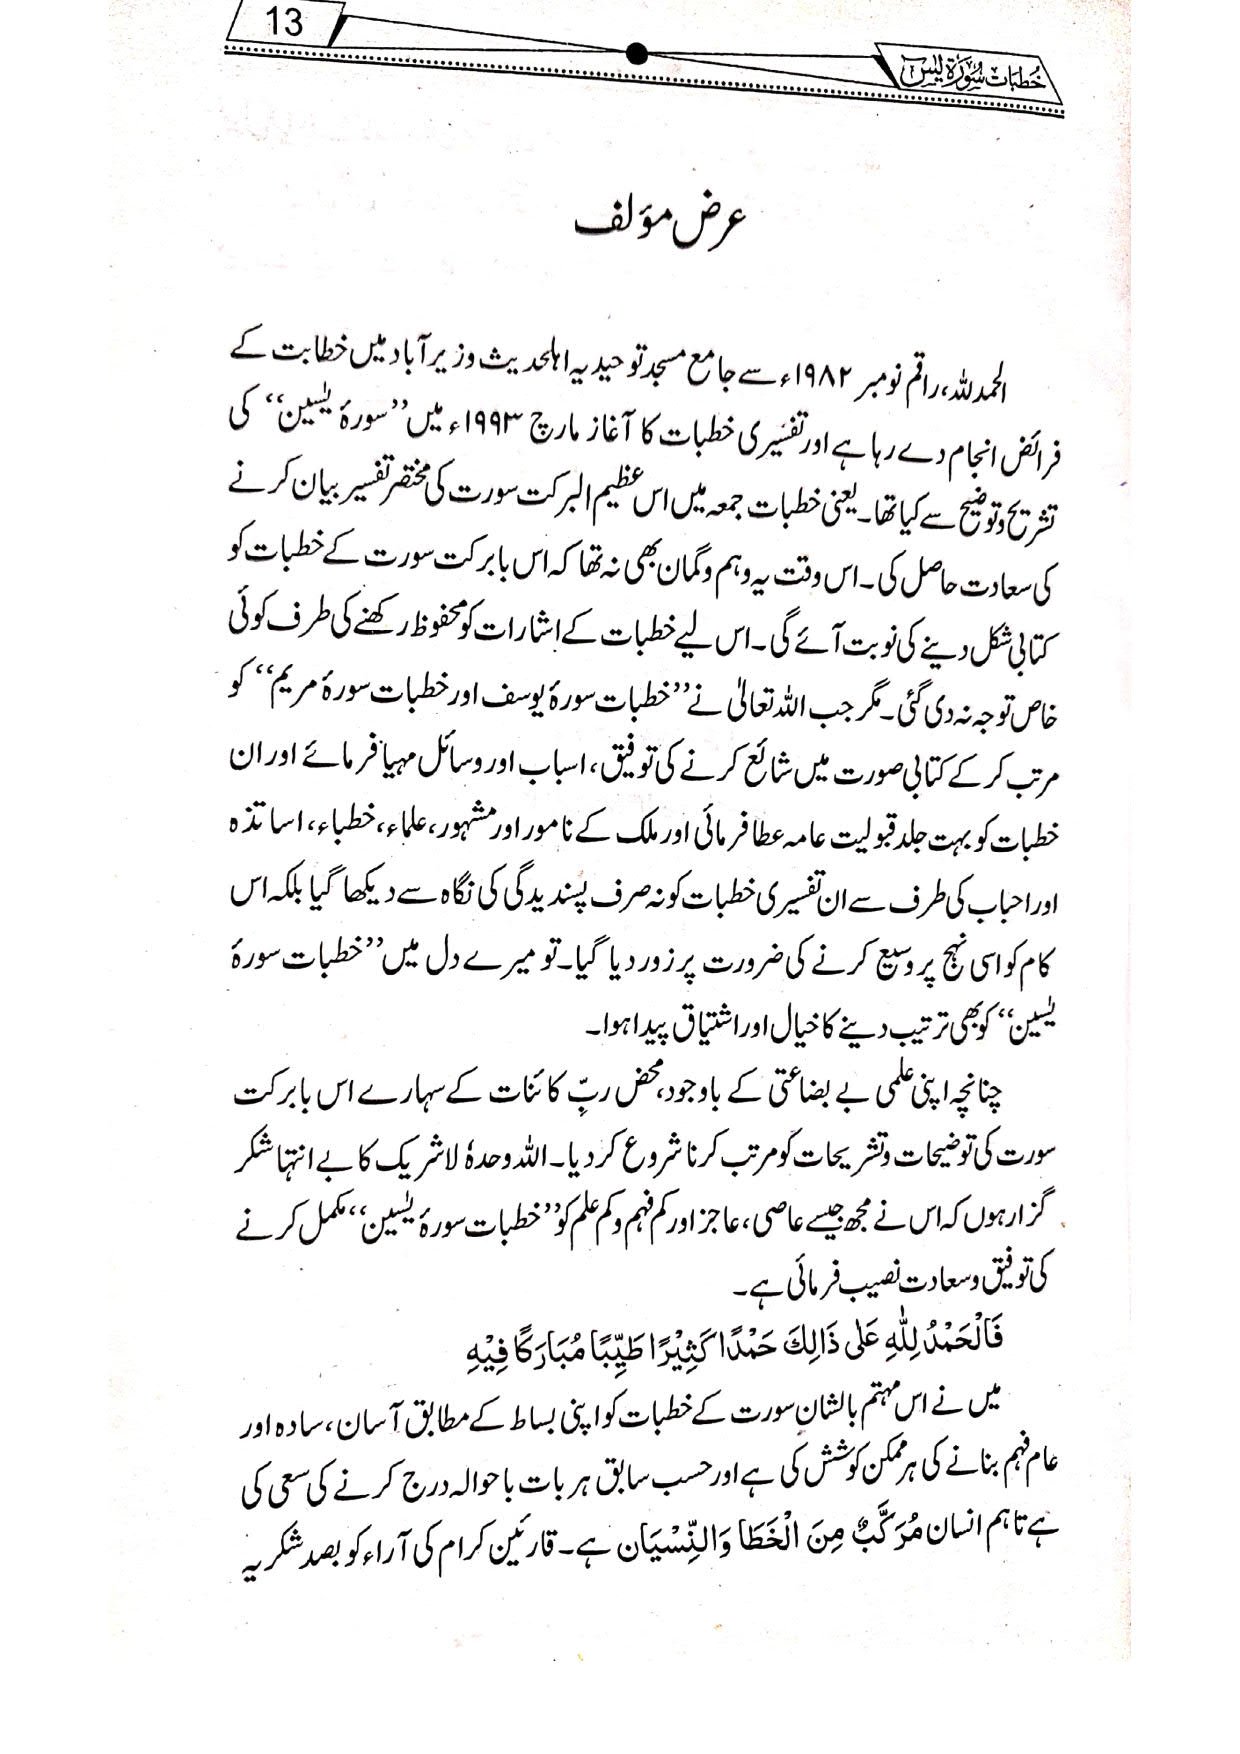 13
خطبات سُوْرَۃ یٰسٓ
عرض مؤلف
الحمدللہ، راقم نومبر ۱۹۸۲ء سے جامع مسجد توحیدیہ اہلحدیث وزیرآباد میں خطابت کے
فرائض انجام دے رہا ہے اور تفسیری خطبات کا آغاز مارچ ۱۹۹۳ء میں ’’سورۂ یٰسین‘‘ کی
تشریح و توضیح سے کیا تھا۔ یعنی خطبات جمعہ میں اس عظیم البرکت سورت کی مختصر تفسیر بیان کرنے
کی سعادت حاصل کی۔ اس وقت یہ وہم و گمان بھی نہ تھا کہ اس بابرکت سورت کے خطبات کو
کتابی شکل دینے کی نوبت آئے گی۔ اس لیے خطبات کے اشارات کو محفوظ رکھنے کی طرف کوئی
خاص توجہ نہ دی گئی۔ مگر جب اللہ تعالیٰ نے ’’خطبات سورۂ یوسف اور خطبات سورۂ مریم‘‘ کو
مرتب کر کے کتابی صورت میں شائع کرنے کی توفیق، اسباب اور وسائل مہیا فرمائے اور ان
خطبات کو بہت جلد قبولیت عامہ عطا فرمائی اور ملک کے نامور اور مشہور، علماء، خطباء، اساتذہ
اور احباب کی طرف سے ان تفسیری خطبات کو نہ صرف پسندیدگی کی نگاہ سے دیکھا گیا بلکہ اس
کام کو اسی نہج پر وسیع کرنے کی ضرورت پر زور دیا گیا۔ تو میرے دل میں ’’خطبات سورۂ
یٰسین‘‘ کو بھی ترتیب دینے کا خیال اور اشتیاق پیدا ہوا۔
چنانچہ اپنی علمی بے بضاعتی کے باوجود، محض ربِّ کائنات کے سہارے اس بابرکت
سورت کی توضیحات و تشریحات کو مرتب کرنا شروع کر دیا۔ اللہ وحدہٗ لاشریک کا بے انتہا شکر
گزار ہوں کہ اس نے مجھ جیسے عاصی، عاجز اور کم فہم و کم علم کو ’’خطبات سورۂ یٰسین‘‘ مکمل کرنے
کی توفیق و سعادت نصیب فرمائی ہے۔
فَالْحَمْدُ لِلّٰهِ عَلٰی ذَالِكَ حَمْدًا كَثِيْرًا طَيِّبًا مُبَارَكًا فِيْهِ
میں نے اس مہتم بالشان سورت کے خطبات کو اپنی بساط کے مطابق آسان، سادہ اور
عام فہم بنانے کی ہر ممکن کوشش کی ہے اور حسب سابق ہر بات باحوالہ درج کرنے کی سعی کی
ہے تاہم انسان مُرَكَّبٌ مِنَ الْخَطَا وَالنِّسْيَان ہے۔ قارئین کرام کی آراء کو بصد شکریہ